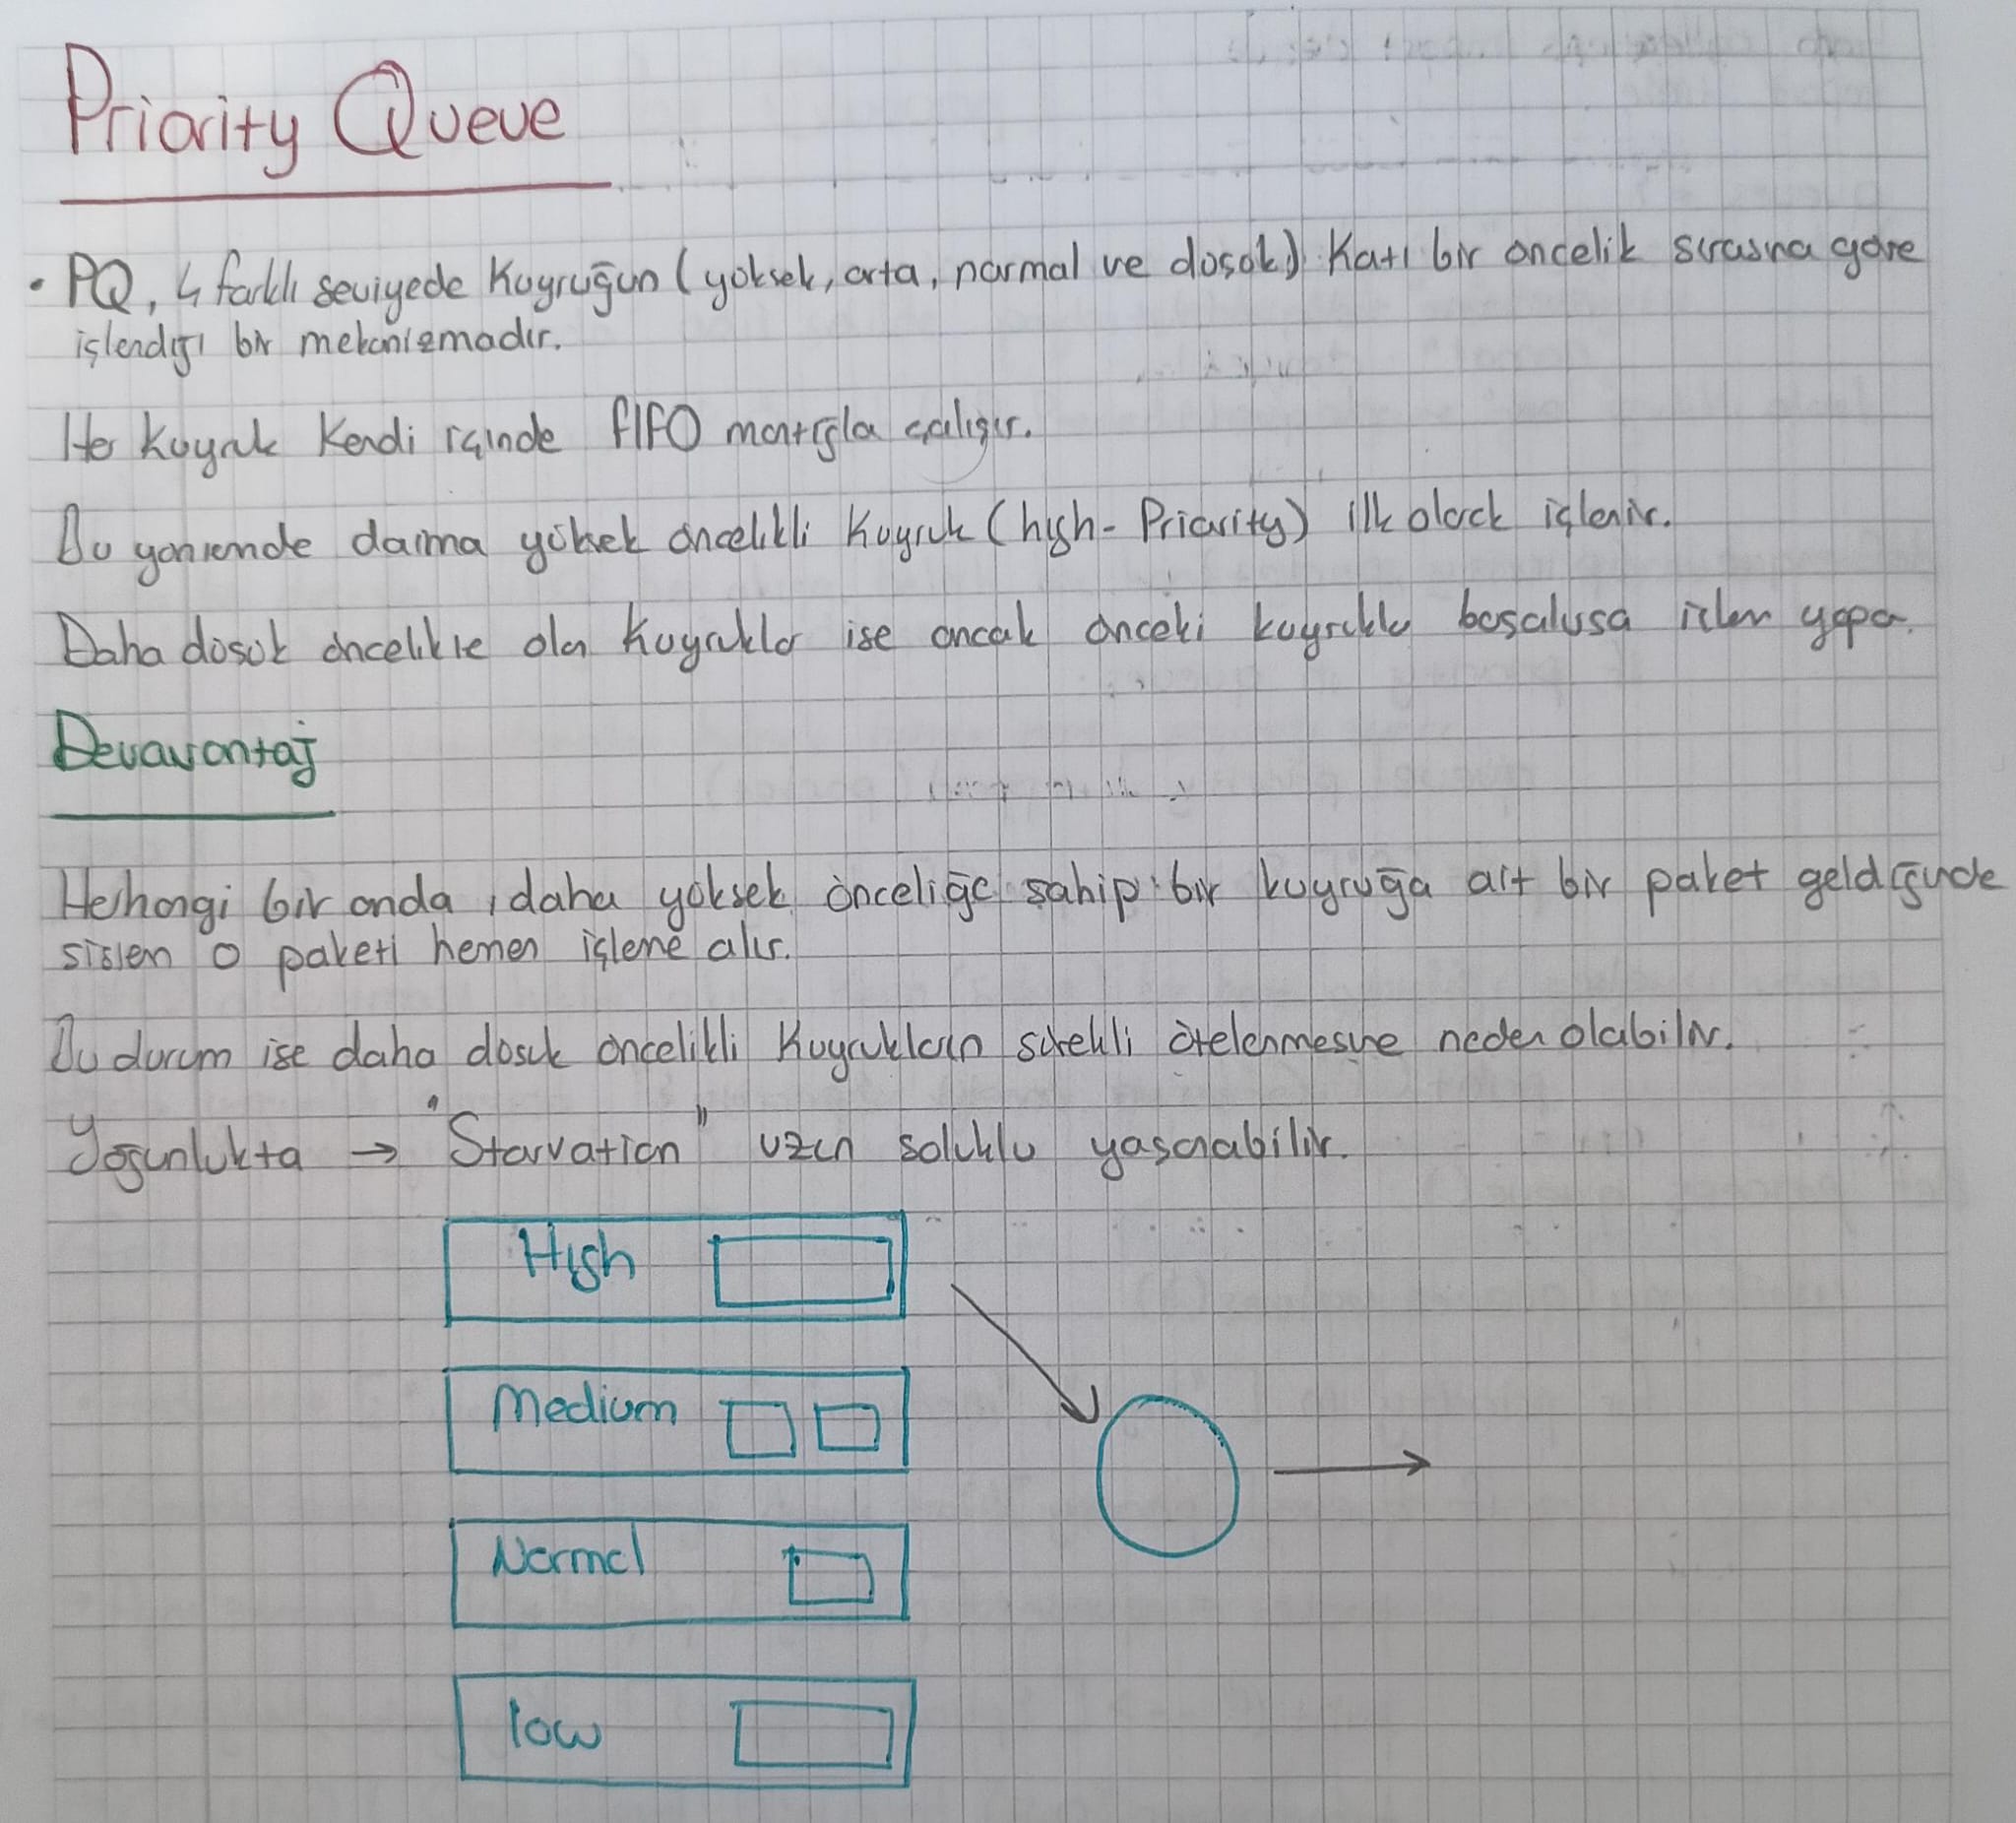 Priority Queue
• PQ, 4 farklı seviyede kuyruğun (yüksek, orta, normal ve düşük) katı bir öncelik sırasına göre
işlendiği bir mekanizmadır.
Her kuyruk kendi içinde FIFO mantığıyla çalışır.
Bu yöntemde daima yüksek öncelikli kuyruk (high-Priority) ilk olarak işlenir.
Daha düşük öncelikte olan kuyruklar ise ancak önceki kuyruklar boşalırsa işlem yapar.
Devavantaj
Herhangi bir anda, daha yüksek önceliğe sahip bir kuyruğa ait bir paket geldiğinde
sistem o paketi hemen işleme alır.
Bu durum ise daha düşük öncelikli kuyrukların sürekli ötelenmesine neden olabilir.
Yoğunlukta → "Starvation" uzun soluklu yaşanabilir.
High
Medium
Normal
low